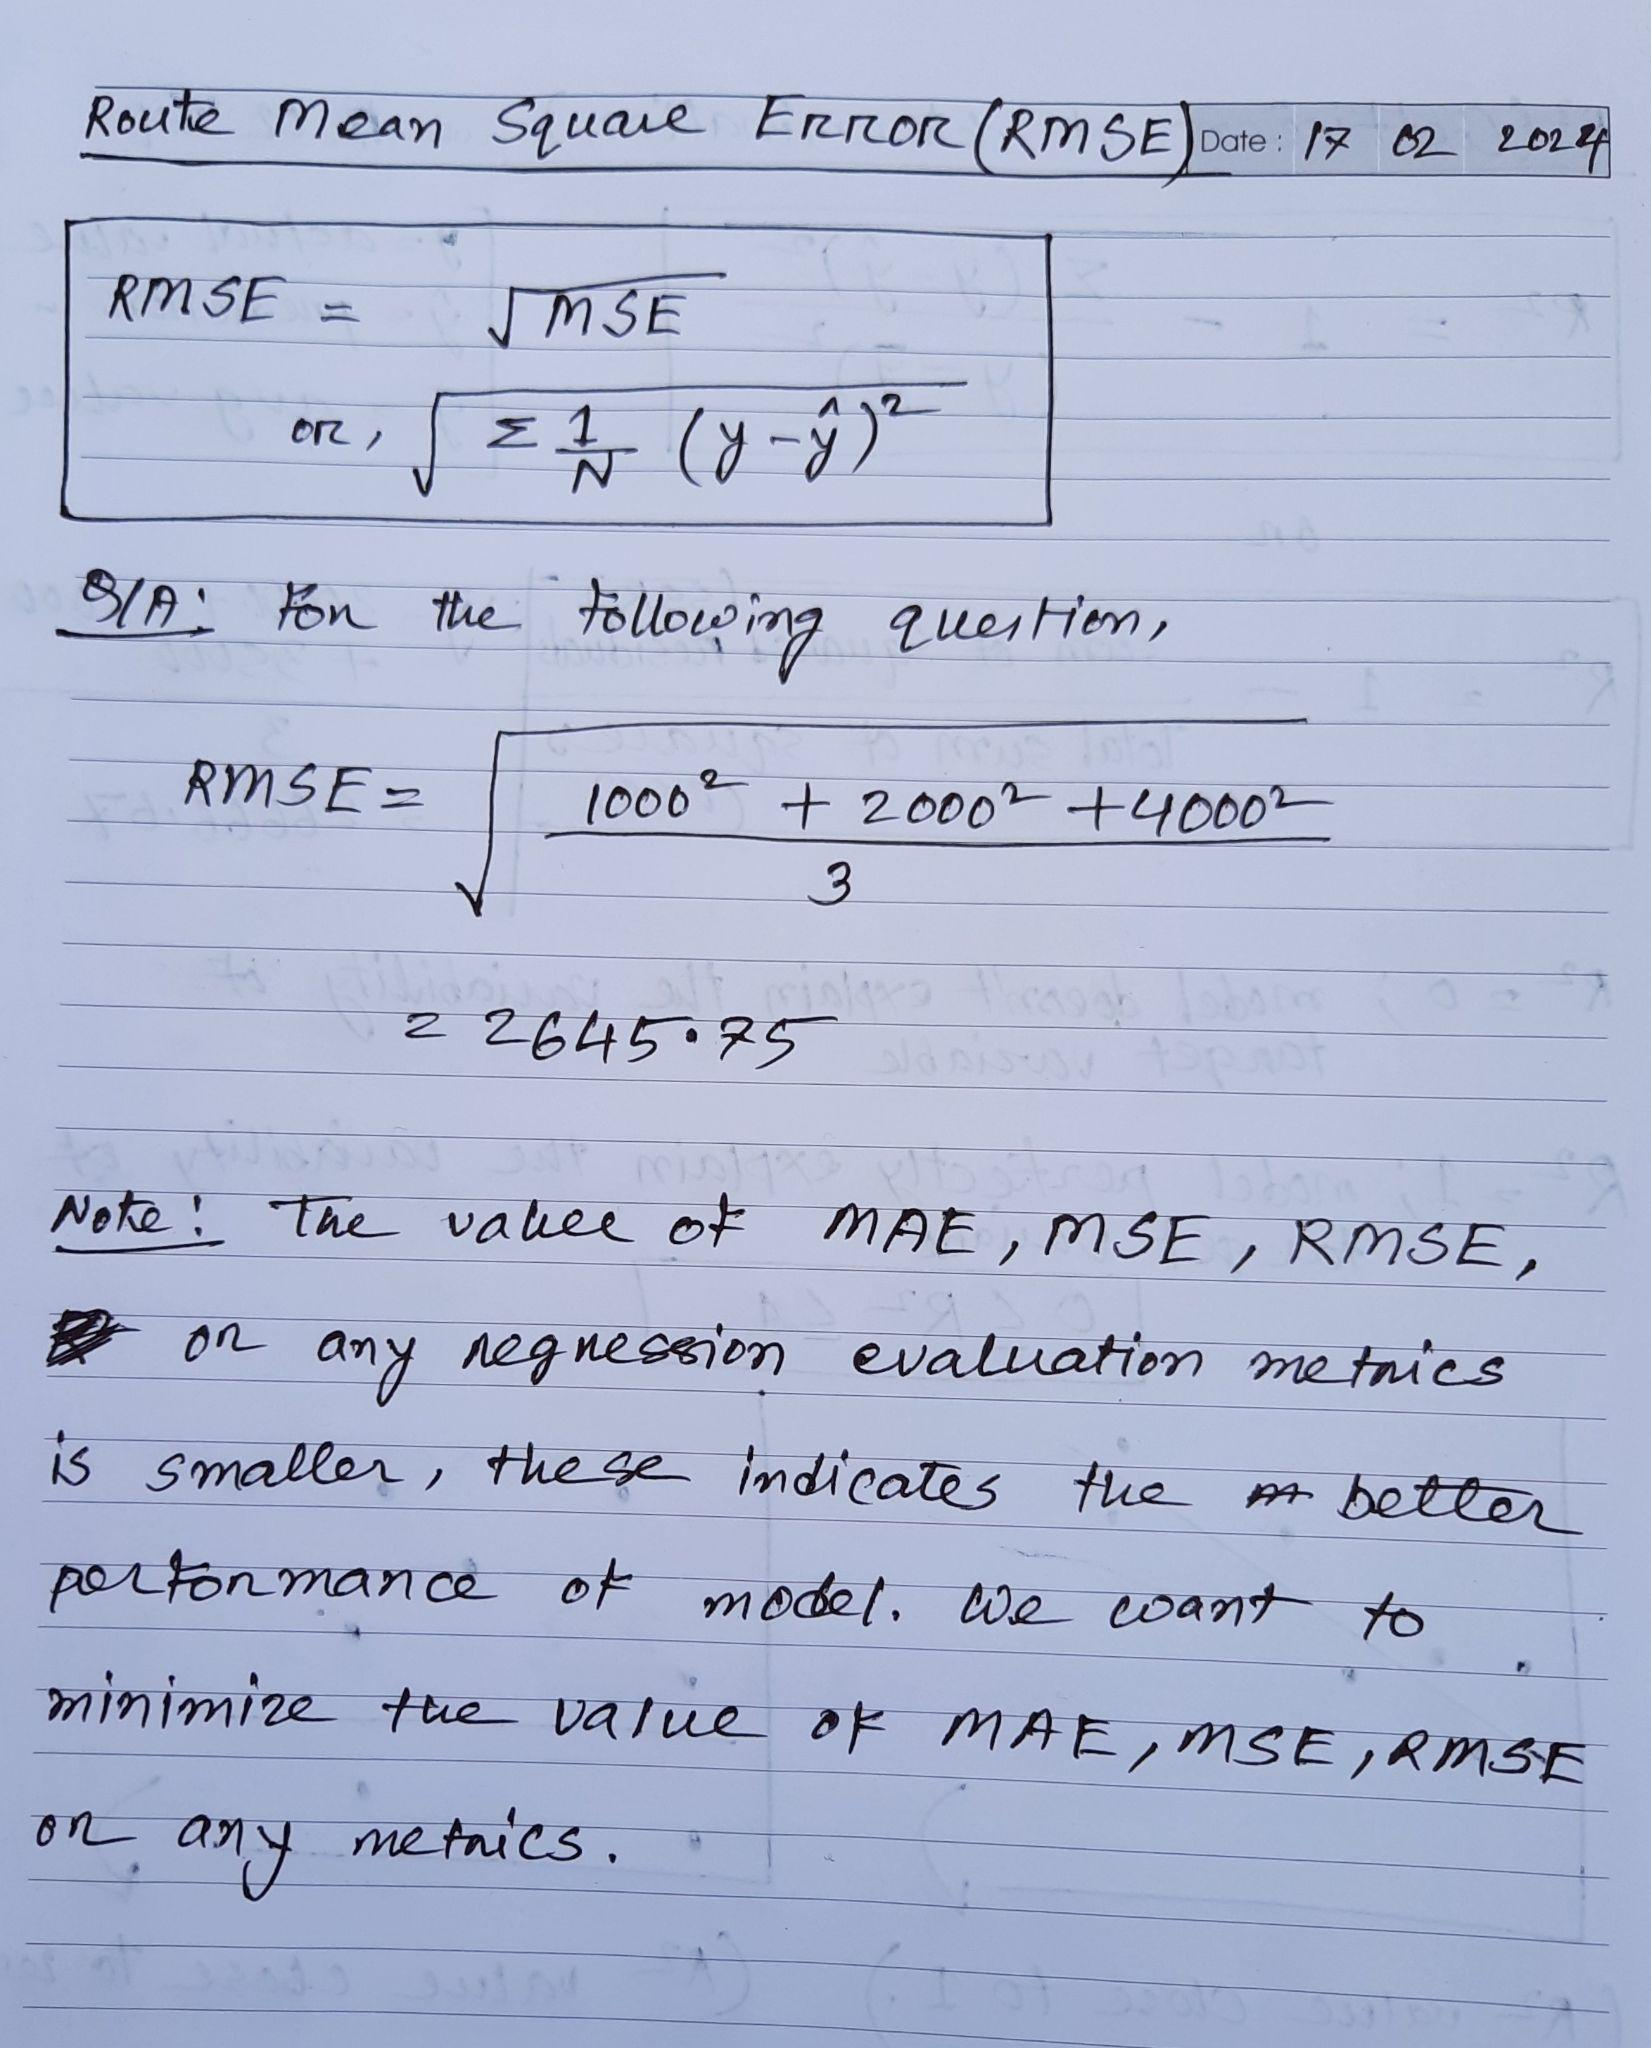 Route Mean Square Error (RMSE) Date: 17 02 2024
RMSE = √MSE
or, √Σ 1/N (y-ŷ)²
Q/A: For the following question,
RMSE = √(1000² + 2000² + 4000²)/3
= 2645.75
Note: The value of MAE, MSE, RMSE,
or any regression evaluation metrics
is smaller, these indicates the better
performance of model. We want to
minimize the value of MAE, MSE, RMSE
or any metrics.